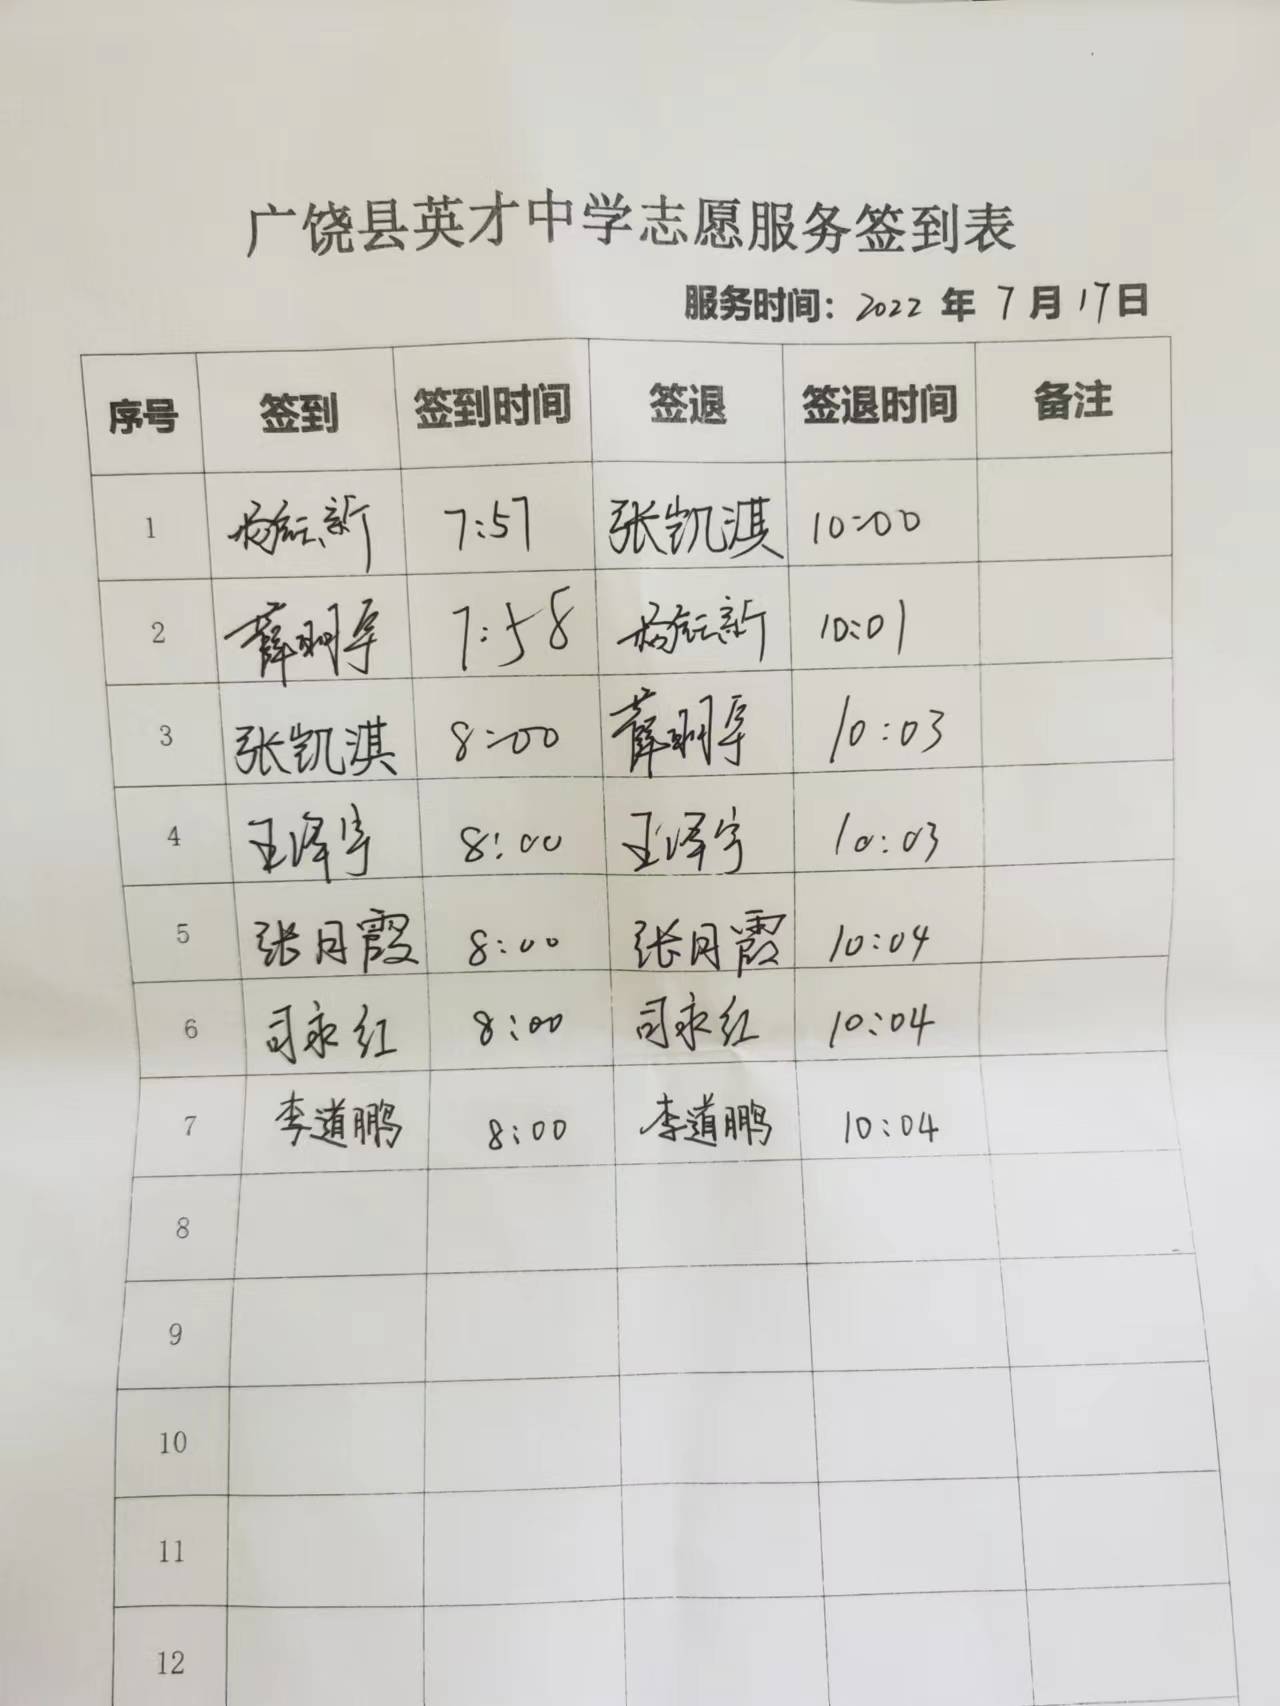 广饶县英才中学志愿服务签到表
服务时间：2022 年 7 月 17日
序号 签到 签到时间 签退 签退时间 备注
1 7:57 张凯淇 10:00
2 薛明宇 7:58 10:01
3 张凯淇 8:00 薛明宇 10:03
4 王泽宇 8:00 王泽宇 10:03
5 张月霞 8:00 张月霞 10:04
6 司永红 8:00 司永红 10:04
7 李道鹏 8:00 李道鹏 10:04
8
9
10
11
12